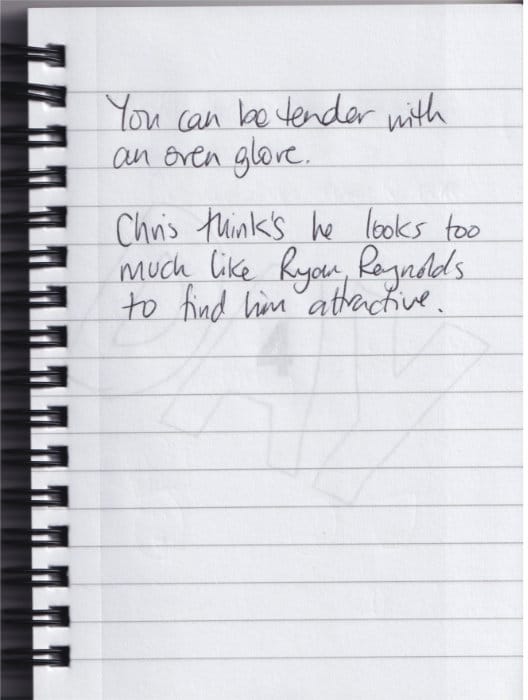 You can be tender with
an oven glove.
Chris think's he looks too
much like Ryan Reynolds
to find him attractive.
4